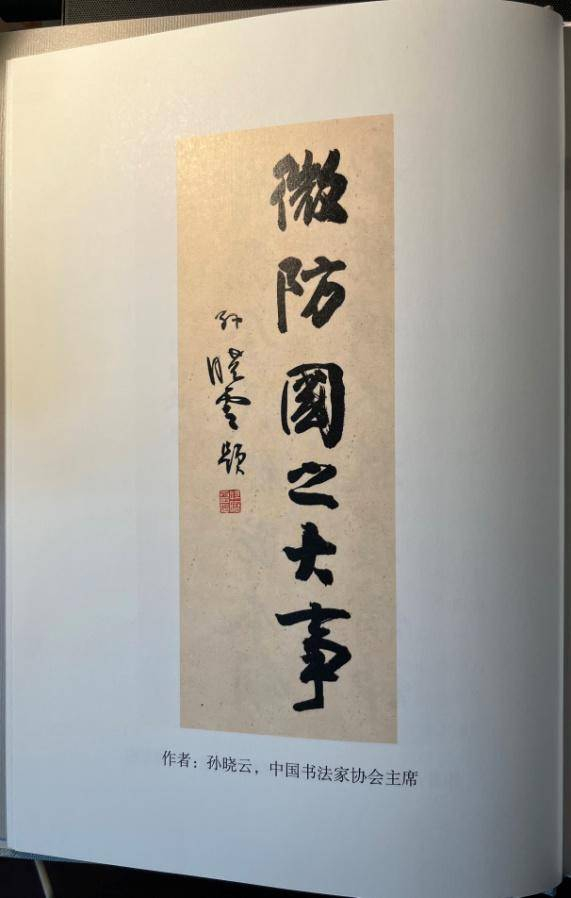 微防國之大事
孙晓雲题
作者：孙晓云，中国书法家协会主席